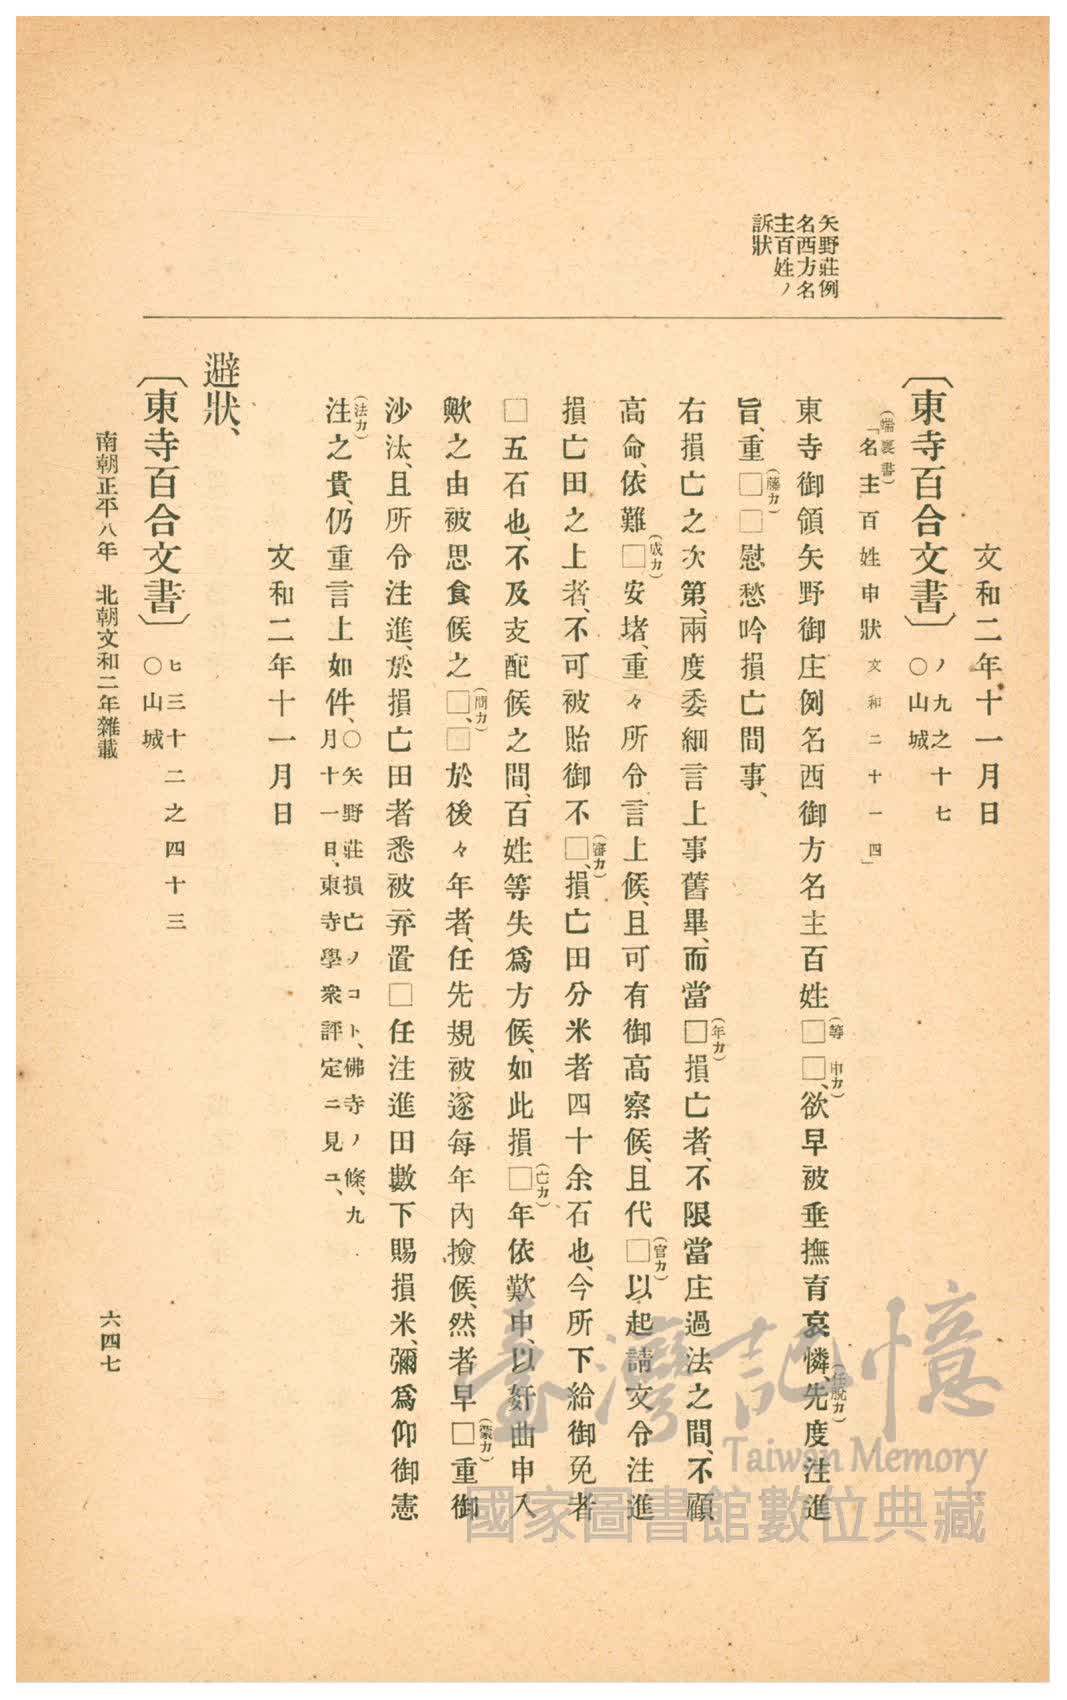 矢野莊例
名西方名
主百姓ノ
訴狀
文和二年十一月日
〔東寺百合文書〕 ノ九之十七
〇山城
(端裏書)
「名主百姓申狀 文和二十一四」
東寺御領矢野御庄例名西御方名主百姓□(等)□(申カ)、欲早被垂撫育哀憐、先度注進(任脫カ)
旨、重□(藤カ)□慰愁吟損亡間事、
右損亡之次第、兩度委細言上事舊畢、而當□(年カ)損亡者、不限當庄過法之間、不顧
高命、依難□(成カ)安堵、重々所令言上候、且可有御高察候、且代□(官カ)以起請文令注進
損亡田之上者、不可被貽御不□(審カ)、損亡田分米者四十余石也、今所下給御免者
□五石也、不及支配候之間、百姓等失爲方候、如此損□(亡カ)年依歎申、以奸曲申入
歟之由被思食候之□(間カ)、□於後々年者、任先規被遂每年內撿候、然者早□(蒙カ)重御
沙汰、且所令注進、於損亡田者悉被弃置□任注進田數下賜損米、彌爲仰御憲
注(法カ)之貴、仍重言上如件、〇矢野莊損亡ノコト、佛寺ノ條、九
月十一日、東寺學衆評定ニ見ユ、
文和二年十一月日
避狀、
〔東寺百合文書〕 ヒ三十二之四十三
〇山城
南朝正平八年 北朝文和二年雜載
六四七
臺灣記憶
Taiwan Memory
國家圖書館數位典藏